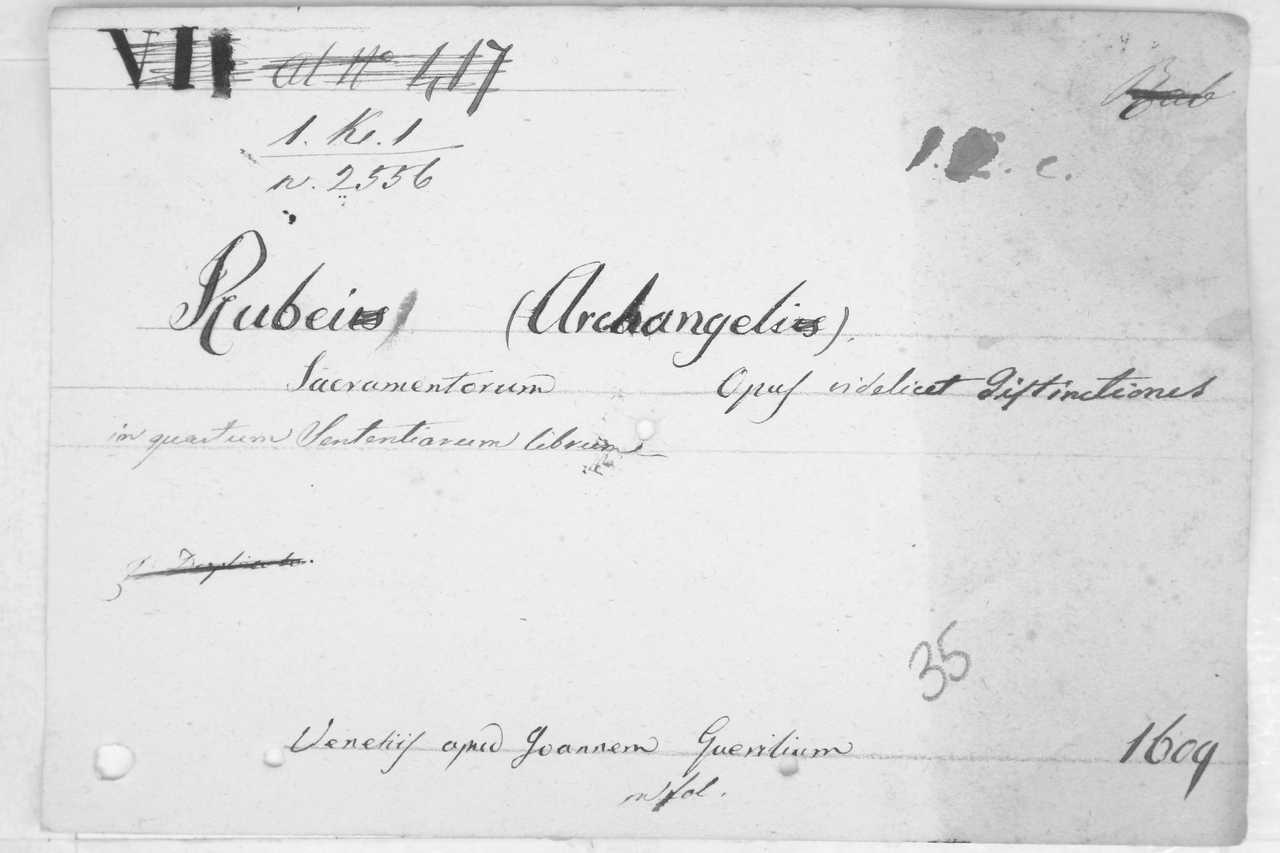 VII al No 417
1. K. 1
n. 2556
1. 2. c.
Rubeis (Archangelis).
Sacramentorum Opus videlicet Distinctiones
in quartum Sententiarum librum
35
Venetiis apud Joannem Guerilium 1609
in fol.